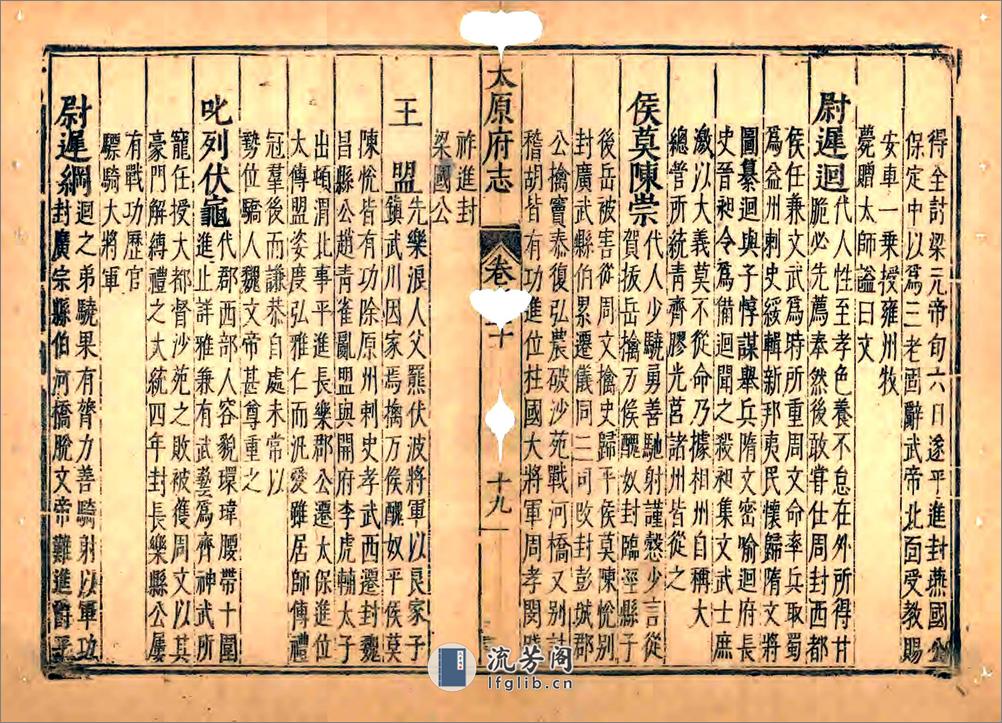 得全討梁元帝旬六日遂平進封燕國公
保定中以爲三老固辭武帝北面受教賜
安車一乗授雍州牧
薨贈太師謚曰文
尉遲迴代人性至孝色養不怠在外所得甘
脆必先薦奉然後敢甞仕周封西都
侯任兼文武爲時所重周文命率兵取蜀
爲益州刺史綏輯新邦夷民懷歸隋文將
圖纂迴與子惇謀舉兵隋文密喻迴府長
史晉昶令爲備迴聞之殺昶集文武士庶
激以大義莫不從命乃據相州自稱大
總管所統青齊膠光莒諸州皆從之
侯莫陳崇代人少驍勇善馳射謹慤少言從
賀拔岳擒万俟醜奴封臨涇縣子
後岳被害從周文擒史歸平侯莫陳悅別
封廣武縣伯累遷儀同三司改封彭城郡
公擒竇泰復弘農破沙苑戰河橋又別討
稽胡皆有功進位柱國大將軍周孝閔踐
祚進封
梁國公
太原府志
卷
二十
十九
王盟先樂浪人父羆伏波將軍以良家子
鎮武川因家焉擒万俟醜奴平侯莫
陳悅皆有功除原州刺史孝武西遷封魏
昌縣公趙青雀亂盟與開府李虎輔太子
出頓渭北事平進長樂郡公遷太保進位
太傅盟姿度弘雅仁而汎愛雖居師傅禮
冠羣後而謙恭自處未常以
勢位驕人魏文帝甚尊重之
叱列伏龜代郡西部人容貌瓌瑋腰帶十圍
進止詳雅兼有武藝爲齊神武所
寵任授大都督沙苑之敗被獲周文以其
豪門解縛禮之大統四年封長樂縣公屢
有戰功歷官
驃騎大將軍
尉遲綱迴之弟驍果有膂力善騎射以軍功
封廣宗縣伯河橋脫文帝難進爵平
流芳阁
lfglib.cn